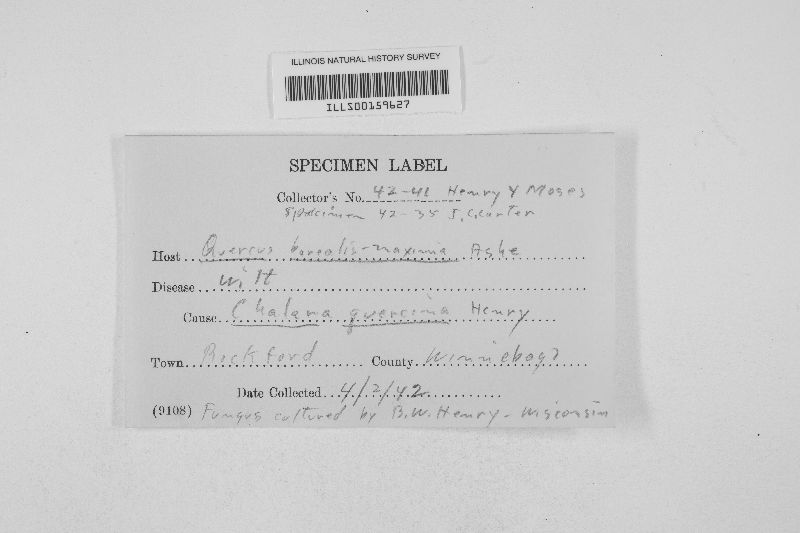 ILLINOIS NATURAL HISTORY SURVEY
ILLS00159627
SPECIMEN LABEL
Collector's No. 42-41 Henry & Moses
Specimen 42-35 J.C. Carter
Host Quercus borealis-maxima Ashe
Disease wilt
Cause Chalara quercina Henry
Town Rockford County Winnebago
Date Collected 4/2/42
(9108) Fungus cultured by B.W. Henry - Wisconsin